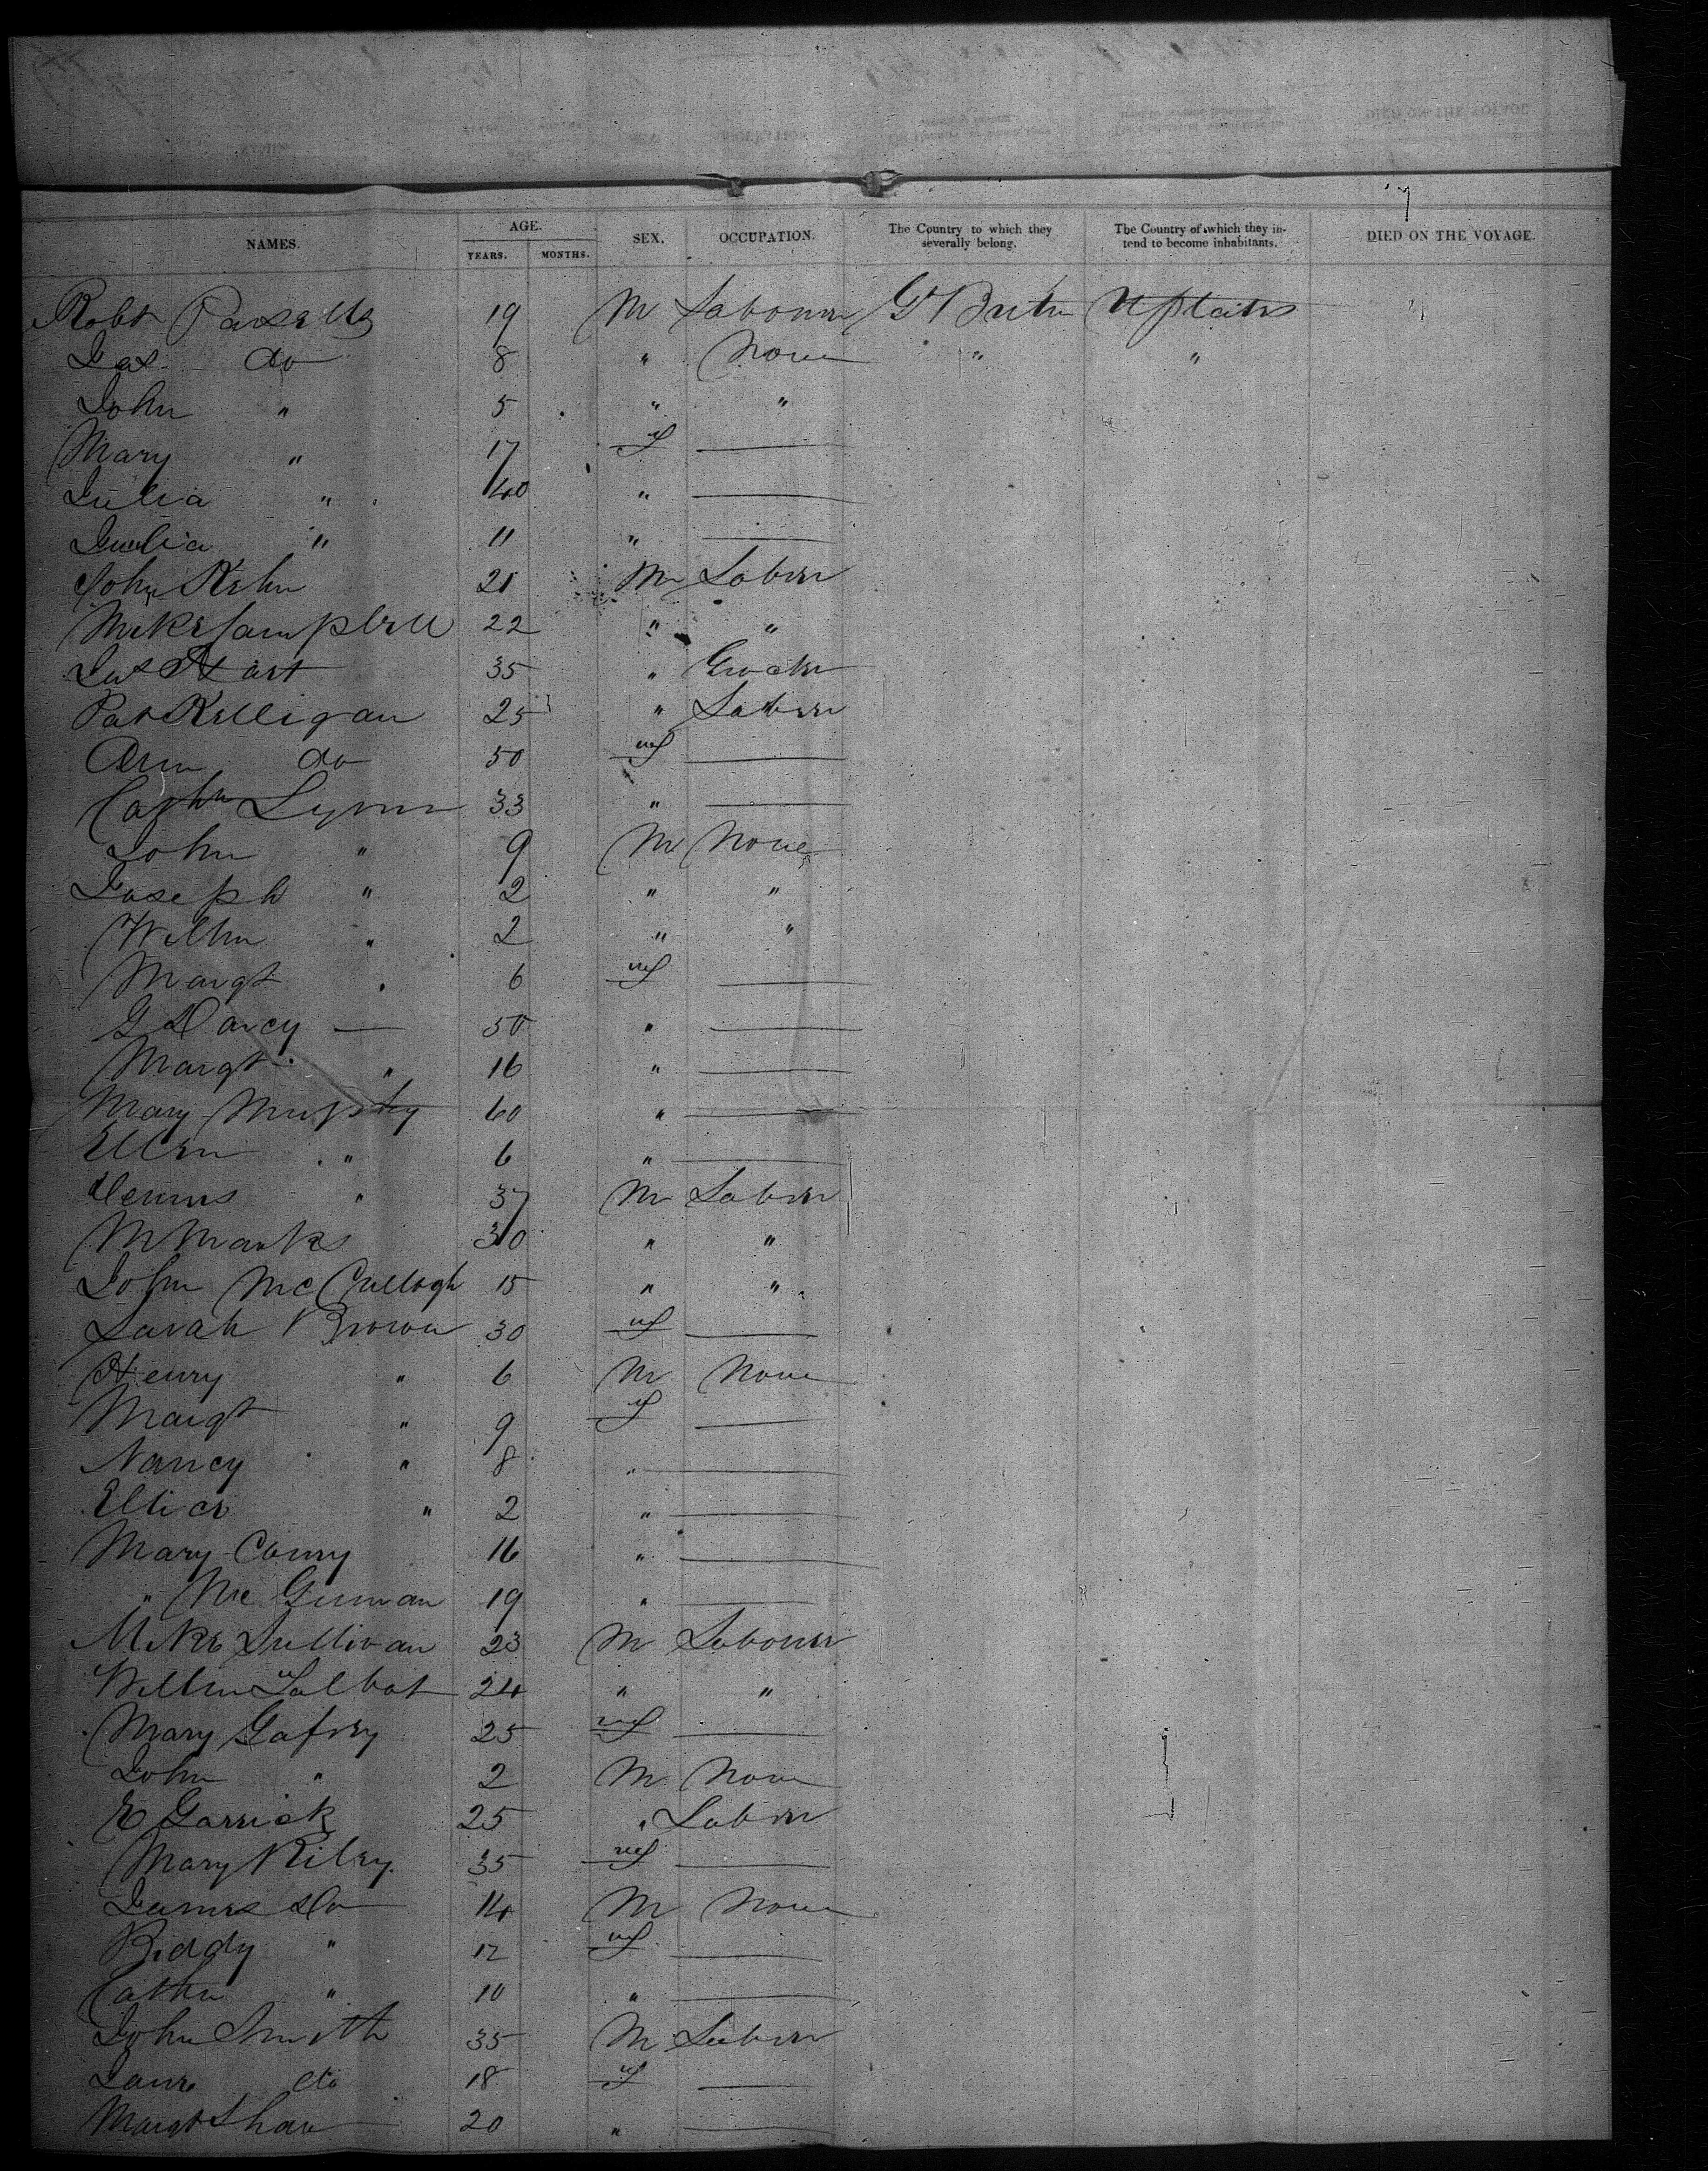 7
NAMES. AGE. YEARS. MONTHS. SEX. OCCUPATION. The Country to which they severally belong. The Country of which they intend to become inhabitants. DIED ON THE VOYAGE.
Robt 19 M Labourer Gt Britn U States
Jas do 8 " None " "
John " 5 " "
Mary " 17 f —
Julia " 40 " —
Julia " 11 " —
John 21 M Labrer
Mike Campbell 22 " "
Jas Hart 35 "
Pat Killigan 25 " Labrer
Ann do 50 f —
Cathn Lynn 33 " —
John " 9 M None
Joseph " 2 " "
Willm " 2 " "
Margt " 6 f —
G Darcy — 50 " —
Margt " 16 " —
Mary Murphy 60 " —
Ellen " 6 " —
Dennis " 37 M Labrer
M Marks 30 " "
John McCullogh 15 " "
Sarah Brown 30 f —
Henry " 6 M None
Margt " 9 f —
Nancy " 8 " —
" 2 " —
Mary 16 " —
" 19 " —
Mike Sullivan 23 M Labourer
Willm Talbot 24 " "
Mary Gafney 25 f —
John " 2 M None
E Garrick 25 " Labrer
Mary Riley 35 f —
James Do 14 M None
Biddy " 12 f —
Cathn " 10 " —
John Smith 35 M Labrer
Jane do 18 f —
Margt Shaw 20 " —